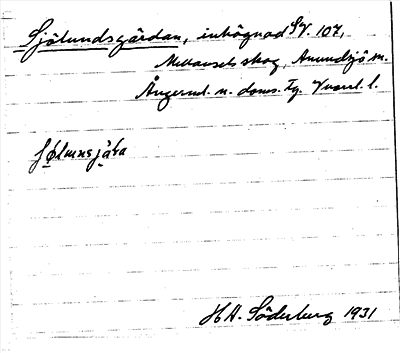 Sjölundsgärdan, inhägnad SV. 107,
Mellansels skog, Anundsjö sn.
Ångerml. n. doms. tg. Vnorrl. l.
H. A. Söderberg 1931